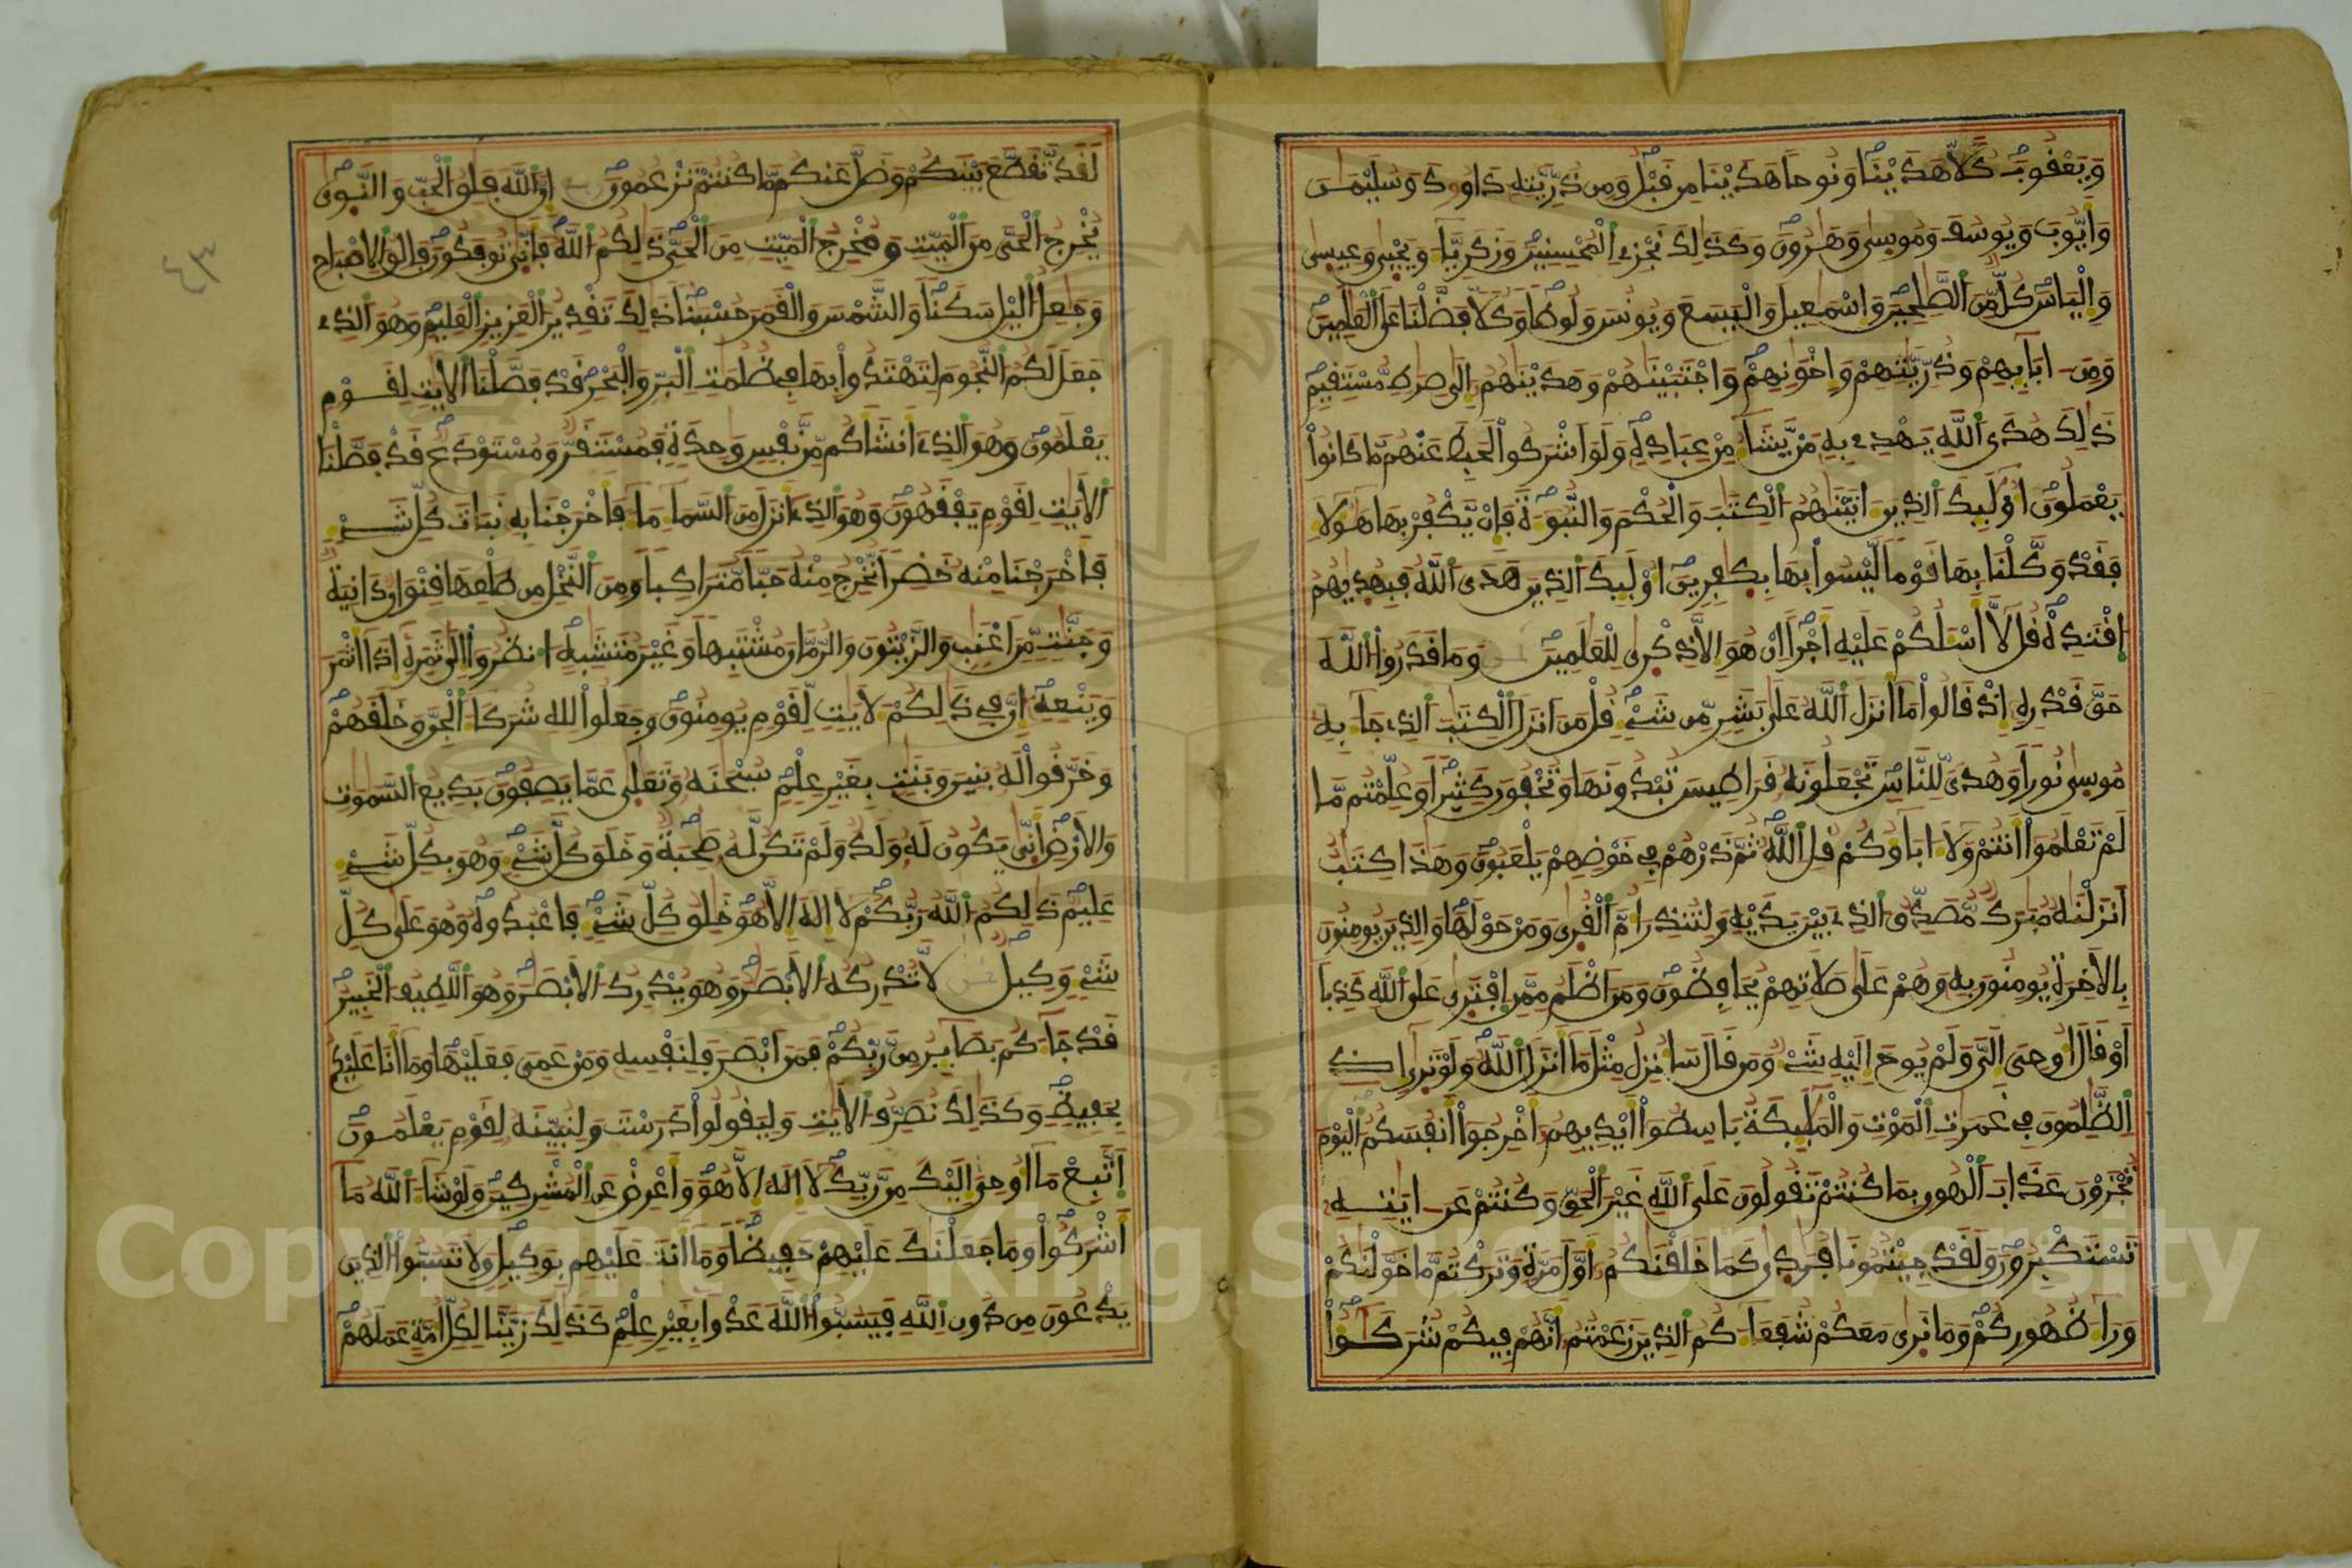 وَيَعْقُوبَ كُلّاً هَدَيْنَا وَنُوحاً هَدَيْنَا مِن قَبْلُ وَمِن ذُرِّيَّتِهِ دَاوُودَ وَسُلَيْمَٰنَ
وَأَيُّوبَ وَيُوسُفَ وَمُوسَىٰ وَهَٰرُونَ وَكَذَٰلِكَ نَجْزِي الْمُحْسِنِينَ وَزَكَرِيَّاءَ وَيَحْيَىٰ وَعِيسَىٰ
وَإِلْيَاسَ كُلٌّ مِّنَ الصَّٰلِحِينَ وَإِسْمَٰعِيلَ وَالْيَسَعَ وَيُونُسَ وَلُوطاً وَكُلّاً فَضَّلْنَا عَلَى الْعَٰلَمِينَ
وَمِنَ ابَائِهِمْ وَذُرِّيَّٰتِهِمْ وَإِخْوَٰنِهِمْ وَاجْتَبَيْنَٰهُمْ وَهَدَيْنَٰهُمُ إِلَىٰ صِرَٰطٍ مُّسْتَقِيمٍ
ذَٰلِكَ هُدَى اللَّهِ يَهْدِي بِهِ مَنْ يَّشَاءُ مِنْ عِبَادِهِ وَلَوَ اشْرَكُوا لَحَبِطَ عَنْهُم مَّا كَانُوا
يَعْمَلُونَ أُوْلَٰئِكَ الذِينَ اتَيْنَٰهُمُ الْكِتَٰبَ وَالْحُكْمَ وَالنُّبُوءَةَ فَإِنْ يَّكْفُرْ بِهَا هَٰؤُلَاءِ
فَقَدْ وَكَّلْنَا بِهَا قَوْماً لَّيْسُوا بِهَا بِكَٰفِرِينَ أُوْلَٰئِكَ الذِينَ هَدَى اللَّهُ فَبِهُدَيٰهُمُ
اقْتَدِهْ قُل لَّا أَسْـَٔلُكُمْ عَلَيْهِ أَجْراً إِنْ هُوَ إِلَّا ذِكْرَىٰ لِلْعَٰلَمِينَ وَمَا قَدَرُوا اللَّهَ
حَقَّ قَدْرِهِ إِذْ قَالُوا مَا أَنزَلَ اللَّهُ عَلَىٰ بَشَرٍ مِّن شَيْءٍ قُلْ مَنَ انزَلَ الْكِتَٰبَ الذِي جَاءَ بِهِ
مُوسَىٰ نُوراً وَهُدىً لِّلنَّاسِ تَجْعَلُونَهُ قَرَاطِيسَ تُبْدُونَهَا وَتُخْفُونَ كَثِيراً وَعُلِّمْتُم مَّا
لَمْ تَعْلَمُوا أَنتُمْ وَلَا ءَابَاؤُكُمْ قُلِ اللَّهُ ثُمَّ ذَرْهُمْ فِي خَوْضِهِمْ يَلْعَبُونَ وَهَٰذَا كِتَٰبٌ
أَنزَلْنَٰهُ مُبَٰرَكٌ مُّصَدِّقُ الذِي بَيْنَ يَدَيْهِ وَلِتُنذِرَ أُمَّ الْقُرَىٰ وَمَنْ حَوْلَهَا وَالذِينَ يُومِنُونَ
بِالْأَخِرَةِ يُومِنُونَ بِهِ وَهُمْ عَلَىٰ صَلَاتِهِمْ يُحَافِظُونَ وَمَنَ اظْلَمُ مِمَّنِ افْتَرَىٰ عَلَى اللَّهِ كَذِباً
أَوْ قَالَ أُوحِيَ إِلَيَّ وَلَمْ يُوحَ إِلَيْهِ شَيْءٌ وَمَن قَالَ سَأُنزِلُ مِثْلَ مَا أَنزَلَ اللَّهُ وَلَوْ تَرَىٰ إِذِ
الظَّٰلِمُونَ فِي غَمَرَٰتِ الْمَوْتِ وَالْمَلَٰئِكَةُ بَاسِطُوا أَيْدِيهِمُ أَخْرِجُوا أَنفُسَكُمُ الْيَوْمَ
تُجْزَوْنَ عَذَابَ الْهُونِ بِمَا كُنتُمْ تَقُولُونَ عَلَى اللَّهِ غَيْرَ الْحَقِّ وَكُنتُمْ عَنَ ايَٰتِهِ
تَسْتَكْبِرُونَ وَلَقَدْ جِئْتُمُونَا فُرَٰدَىٰ كَمَا خَلَقْنَٰكُمُ أَوَّلَ مَرَّةٍ وَتَرَكْتُم مَّا خَوَّلْنَٰكُمْ
وَرَاءَ ظُهُورِكُمْ وَمَا نَرَىٰ مَعَكُمْ شُفَعَاءَكُمُ الذِينَ زَعَمْتُمُ أَنَّهُمْ فِيكُمْ شُرَكَٰؤُا
لَقَد تَّقَطَّعَ بَيْنَكُمْ وَضَلَّ عَنكُم مَّا كُنتُمْ تَزْعُمُونَ إِنَّ اللَّهَ فَٰلِقُ الْحَبِّ وَالنَّوَىٰ
يُخْرِجُ الْحَيَّ مِنَ الْمَيِّتِ وَمُخْرِجُ الْمَيِّتِ مِنَ الْحَيِّ ذَٰلِكُمُ اللَّهُ فَأَنَّىٰ تُوفَكُونَ فَالِقُ الْإِصْبَاحِ
وَجَٰعِلُ اللَّيْلِ سَكَناً وَالشَّمْسَ وَالْقَمَرَ حُسْبَٰناً ذَٰلِكَ تَقْدِيرُ الْعَزِيزِ الْعَلِيمِ وَهُوَ الذِي
جَعَلَ لَكُمُ النُّجُومَ لِتَهْتَدُوا بِهَا فِي ظُلُمَٰتِ الْبَرِّ وَالْبَحْرِ قَدْ فَصَّلْنَا الْأَيَٰتِ لِقَوْمٍ
يَعْلَمُونَ وَهُوَ الذِي أَنشَأَكُم مِّن نَّفْسٍ وَٰحِدَةٍ فَمُسْتَقَرٌّ وَمُسْتَوْدَعٌ قَدْ فَصَّلْنَا
الْأَيَٰتِ لِقَوْمٍ يَفْقَهُونَ وَهُوَ الذِي أَنزَلَ مِنَ السَّمَاءِ مَاءً فَأَخْرَجْنَا بِهِ نَبَاتَ كُلِّ شَيْءٍ
فَأَخْرَجْنَا مِنْهُ خَضِراً نُّخْرِجُ مِنْهُ حَبّاً مُّتَرَاكِباً وَمِنَ النَّخْلِ مِن طَلْعِهَا قِنْوَانٌ دَانِيَةٌ
وَجَنَّٰتٍ مِّنَ اعْنَٰبٍ وَالزَّيْتُونَ وَالرُّمَّانَ مُشْتَبِهاً وَغَيْرَ مُتَشَٰبِهٍ انظُرُوا إِلَىٰ ثَمَرِهِ إِذَا أَثْمَرَ
وَيَنْعِهِ إِنَّ فِي ذَٰلِكُمْ لَأَيَٰتٍ لِّقَوْمٍ يُومِنُونَ وَجَعَلُوا لِلهِ شُرَكَاءَ الْجِنَّ وَخَلَقَهُمْ
وَخَرَّقُوا لَهُ بَنِينَ وَبَنَٰتٍ بِغَيْرِ عِلْمٍ سُبْحَٰنَهُ وَتَعَٰلَىٰ عَمَّا يَصِفُونَ بَدِيعُ السَّمَٰوَٰتِ
وَالْأَرْضِ أَنَّىٰ يَكُونُ لَهُ وَلَدٌ وَلَمْ تَكُن لَّهُ صَٰحِبَةٌ وَخَلَقَ كُلَّ شَيْءٍ وَهُوَ بِكُلِّ شَيْءٍ
عَلِيمٌ ذَٰلِكُمُ اللَّهُ رَبُّكُمْ لَا إِلَٰهَ إِلَّا هُوَ خَٰلِقُ كُلِّ شَيْءٍ فَاعْبُدُوهُ وَهُوَ عَلَىٰ كُلِّ
شَيْءٍ وَكِيلٌ لَّا تُدْرِكُهُ الْأَبْصَٰرُ وَهُوَ يُدْرِكُ الْأَبْصَٰرَ وَهُوَ اللَّطِيفُ الْخَبِيرُ
قَدْ جَاءَكُم بَصَائِرُ مِن رَّبِّكُمْ فَمَنَ ابْصَرَ فَلِنَفْسِهِ وَمَنْ عَمِيَ فَعَلَيْهَا وَمَا أَنَا عَلَيْكُم
بِحَفِيظٍ وَكَذَٰلِكَ نُصَرِّفُ الْأَيَٰتِ وَلِيَقُولُوا دَرَسْتَ وَلِنُبَيِّنَهُ لِقَوْمٍ يَعْلَمُونَ
اَتَّبِعْ مَا أُوحِيَ إِلَيْكَ مِن رَّبِّكَ لَا إِلَٰهَ إِلَّا هُوَ وَأَعْرِضْ عَنِ الْمُشْرِكِينَ وَلَوْ شَاءَ اللَّهُ مَا
أَشْرَكُوا وَمَا جَعَلْنَٰكَ عَلَيْهِمْ حَفِيظاً وَمَا أَنتَ عَلَيْهِم بِوَكِيلٍ وَلَا تَسُبُّوا الذِينَ
يَدْعُونَ مِن دُونِ اللَّهِ فَيَسُبُّوا اللَّهَ عَدْواً بِغَيْرِ عِلْمٍ كَذَٰلِكَ زَيَّنَّا لِكُلِّ أُمَّةٍ عَمَلَهُمْ
٤٣
Copyright © King Saud University